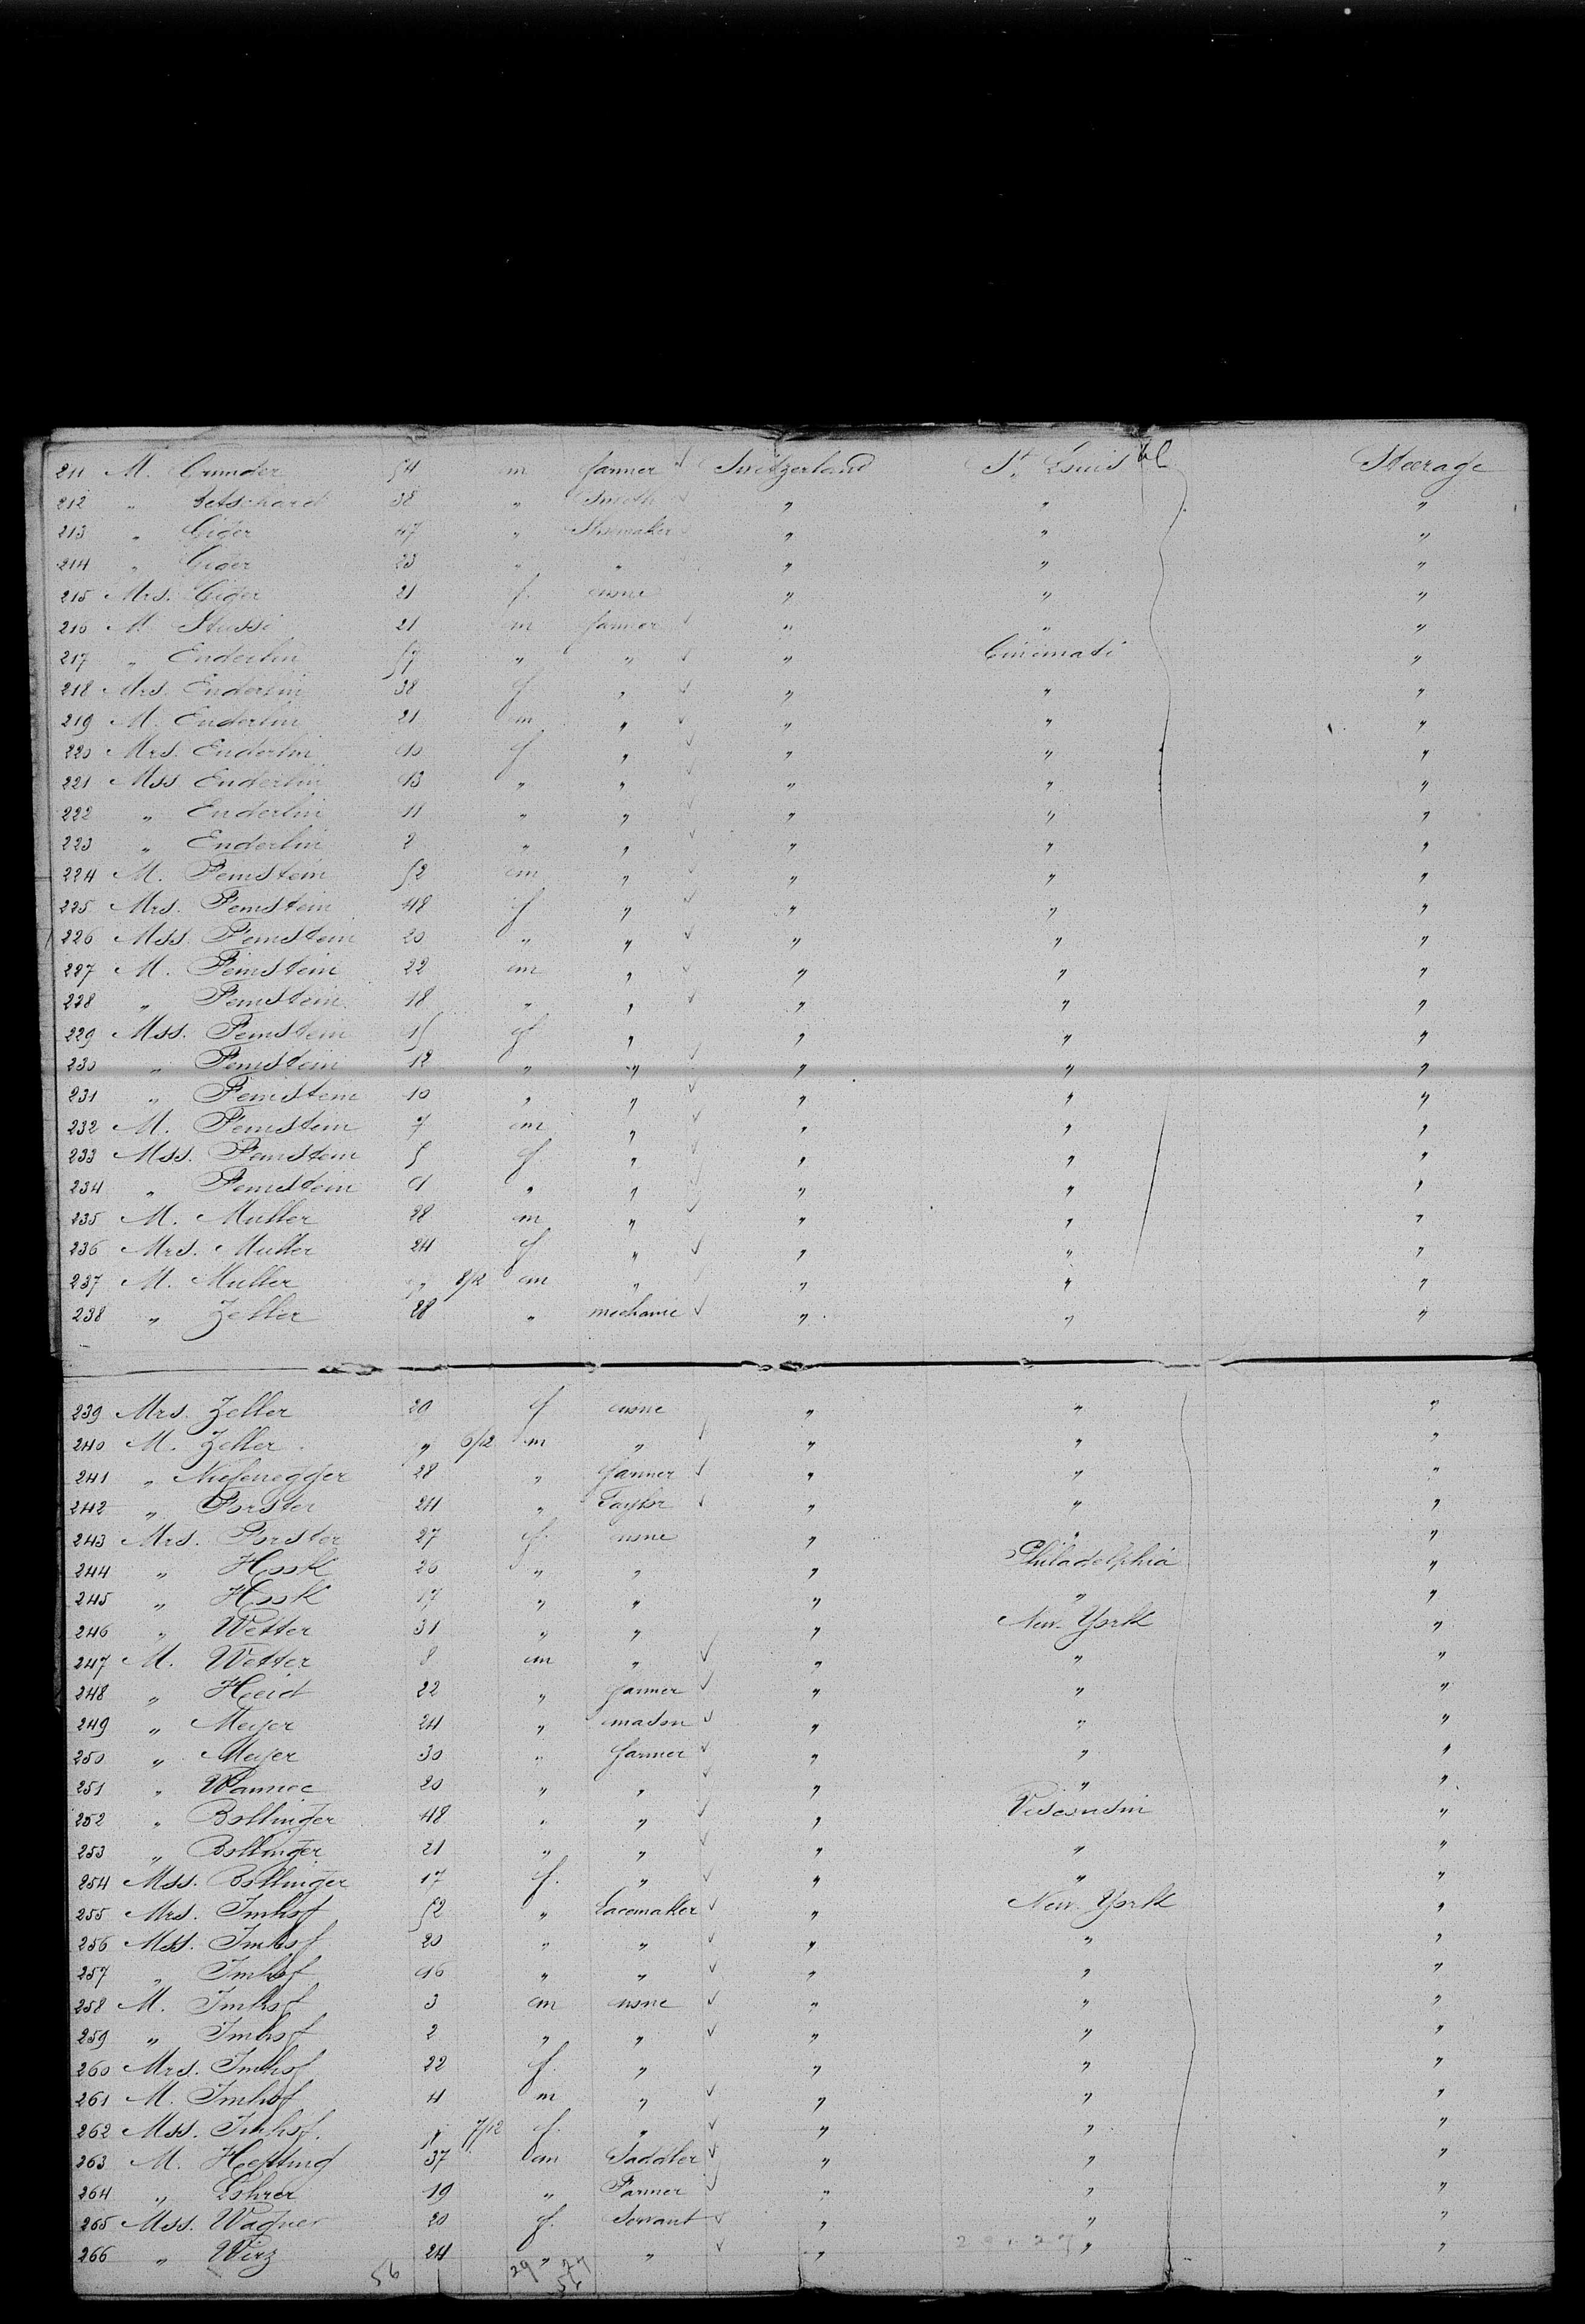 211 M. Grunder 54 m farmer Switzerland St. Louis Steerage
212 " Betschard 38 " Smith " " "
213 " Giger 47 " Shoemaker " " "
214 " Giger 23 " " " " "
215 Mrs. Giger 21 f. none " " "
216 M. Stussi 21 m farmer " " "
217 " Enderlin 57 " " " Cincinnati "
218 Mrs. Enderlin 38 f " " " "
219 M. Enderlin 21 m " " " "
220 Mrs. Enderlin f " " " "
221 Mss Enderlin 13 " " " " "
222 " Enderlin 11 " " " " "
223 " Enderlin 2 " " " " "
224 M. Femstein 52 m " " " "
225 Mrs. Femstein 48 f " " " "
226 Mss. Femstein 20 " " " " "
227 M. Femstein 22 m " " " "
228 " Femstein 18 " " " " "
229 Mss. Femstein 15 f " " " "
230 " Femstein 12 " " " " "
231 " Femstein 10 " " " " "
232 M. Femstein 7 m " " " "
233 Mss. Femstein 5 f " " " "
234 " Femstein " " " " "
235 M. Muller 28 m " " " "
236 Mrs. Muller 24 f " " " "
237 M. Muller " 8/12 m " " " "
238 " Zeller 28 " mechanic " " "
239 Mrs. Zeller 20 f none " " "
240 M. Zeller " 6/12 m " " " "
241 " Niefenegger 28 " farmer " " "
242 " Forster 24 " Taylor " " "
243 Mrs. Forster 27 f. none " " "
244 " Hook 26 " " " Philadelphia "
245 " Hook 17 " " " " "
246 " Wetter 31 " " " New-York "
247 M. Wetter 8 m " " " "
248 " Heid 22 " farmer " " "
249 " Meyer 24 " mason " " "
250 " Meyer 30 " farmer " " "
251 " Wanner 20 " " " " "
252 " Bollinger 48 " " " Visconsin "
253 " Bollinger 21 " " " " "
254 Mss. Bollinger 17 f. " " " "
255 Mrs. Imhof 52 " Lacemaker " New-York "
256 Mss. Imhof 20 " " " " "
257 " Imhof 16 " " " " "
258 M. Imhof 3 m none " " "
259 " Imhof 2 " " " " "
260 Mrs. Imhof 22 f. " " " "
261 M. Imhof 4 m " " " "
262 Mss. Imhof. " 7/12 f. " " " "
263 M. Hefting 37 m Saddler " " "
264 " Lohrer 19 " Farmer " " "
265 Mss. Wagner 20 f. Servant " " "
266 " Wirz 24 " " " " "
56 29 27
56